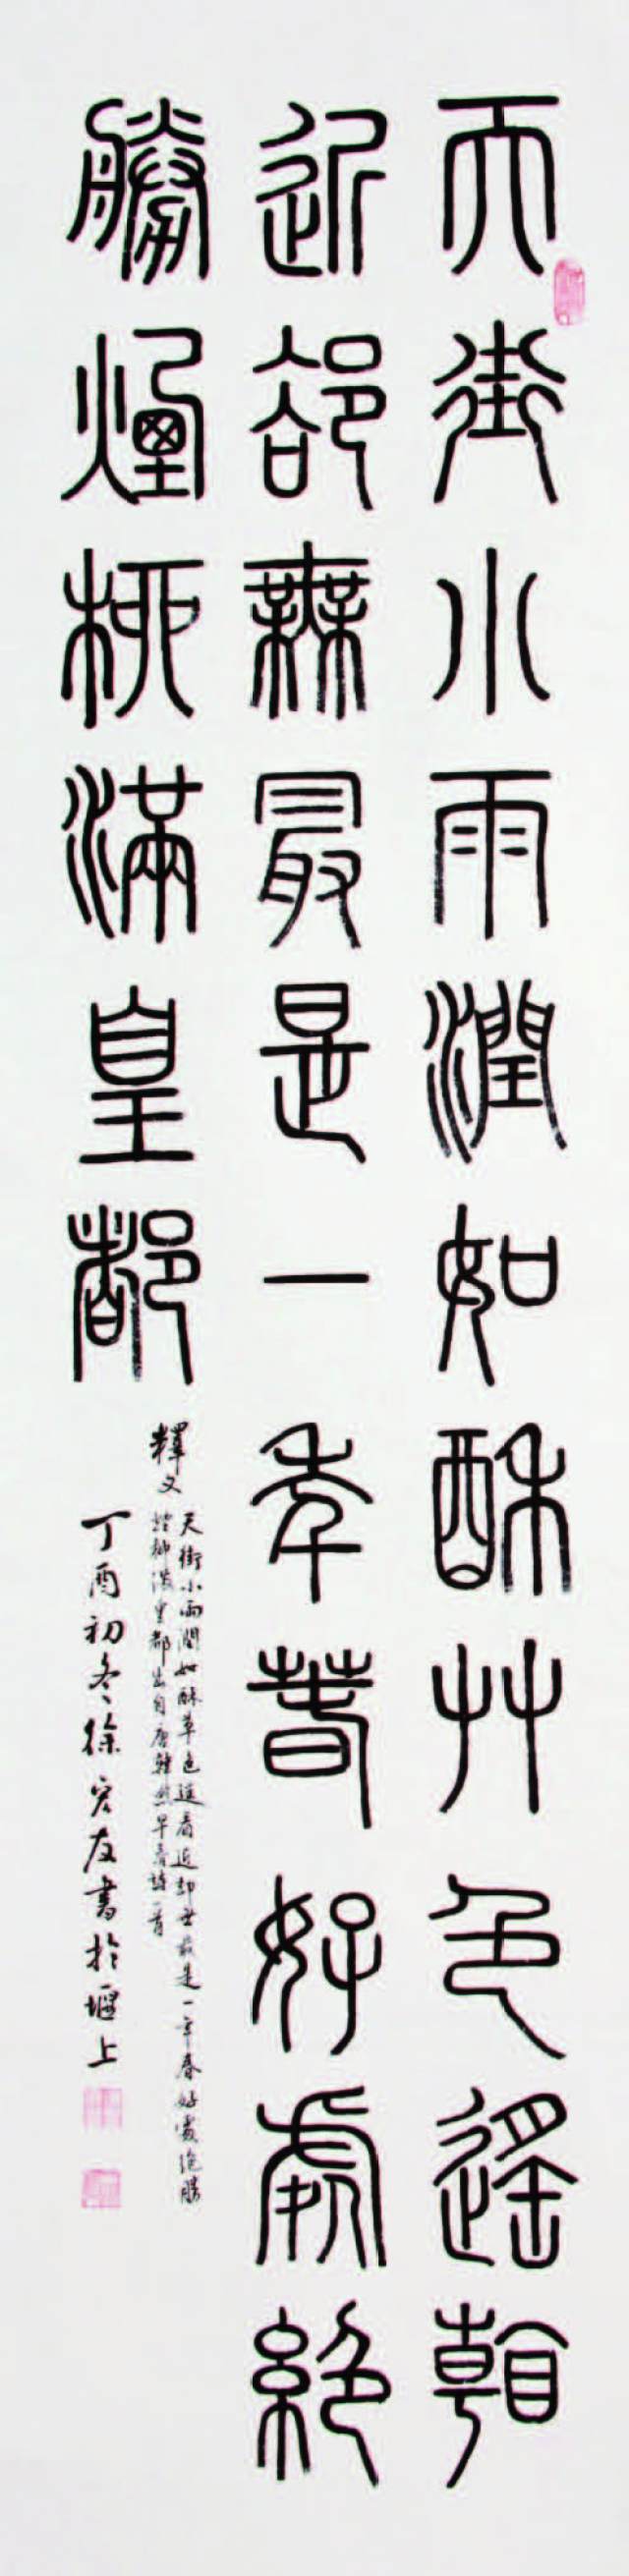 天街小雨潤如酥艸色遙𩏑
近卻無最是一年春好處絕
勝煙柳滿皇都
釋文
天街小雨潤如酥草色遥看近却無最是一年春好處絶勝
煙柳滿皇都出自唐韓愈早春詩一首
丁酉初冬徐宏友書於堰上